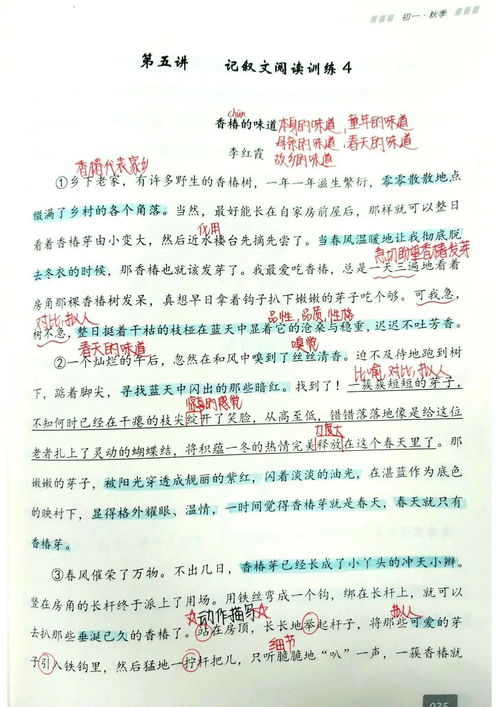 初一·秋季
第五讲 记叙文阅读训练4
chūn
香椿的味道 本身的味道、童年的味道
母亲的味道、春天的味道
李红霞 故乡的味道
香椿代表家乡
①乡下老家，有许多野生的香椿树，一年一年滋生繁衍，零零散散地点
缀满了乡村的各个角落。当然，最好能长在自家房前屋后，那样就可以整日
化用
看着香椿芽由小变大，然后近水楼台先摘先尝了。当春风温暖地让我彻底脱
急切盼望香椿发芽
去冬衣的时候，那香椿也就该发芽了。我最爱吃香椿，总是一天三遍地看着
房角那棵香椿树发呆，真想早日拿着钩子扒下嫩嫩的芽子吃个够。可我急，
对比、拟人 品性、品质、性格
树不急，整日挺着干枯的枝桠在蓝天中显着它的沧桑与稳重，迟迟不吐芳香。
春天的味道 嗅觉
②一个灿烂的午后，忽然在和风中嗅到了丝丝清香。迫不及待地跑到树
比喻、对比、拟人
下，踮着脚尖，寻找蓝天中闪出的那些暗红。找到了！一簇簇短短的芽子，
惊喜的感觉
不知何时已经在干瘪的枝尖绽开了笑脸，从高至低，错错落落地像是给这位
力度大
老者扎上了灵动的蝴蝶结，将积蕴一冬的热情完美释放在这个春天里了。那
嫩嫩的芽子，被阳光穿透成靓丽的紫红，闪着淡淡的油光，在湛蓝作为底色
的映衬下，显得格外耀眼、温情，一时间觉得香椿芽就是春天，春天就只有
香椿芽。
③春风催荣了万物。不出几日，香椿芽已经长成了小丫头的冲天小辫。
竖在房角的长杆终于派上了用场。用铁丝弯成一个钩，绑在长杆上，就可以
☆动作描写☆ 拟人
去扒那些垂涎已久的香椿了。站在房顶，长长地举起杆子，将那些可爱的芽
细节
子引入铁钩里，然后猛地一拧杆把儿，只听脆脆地“叭”一声，一簇香椿就
035